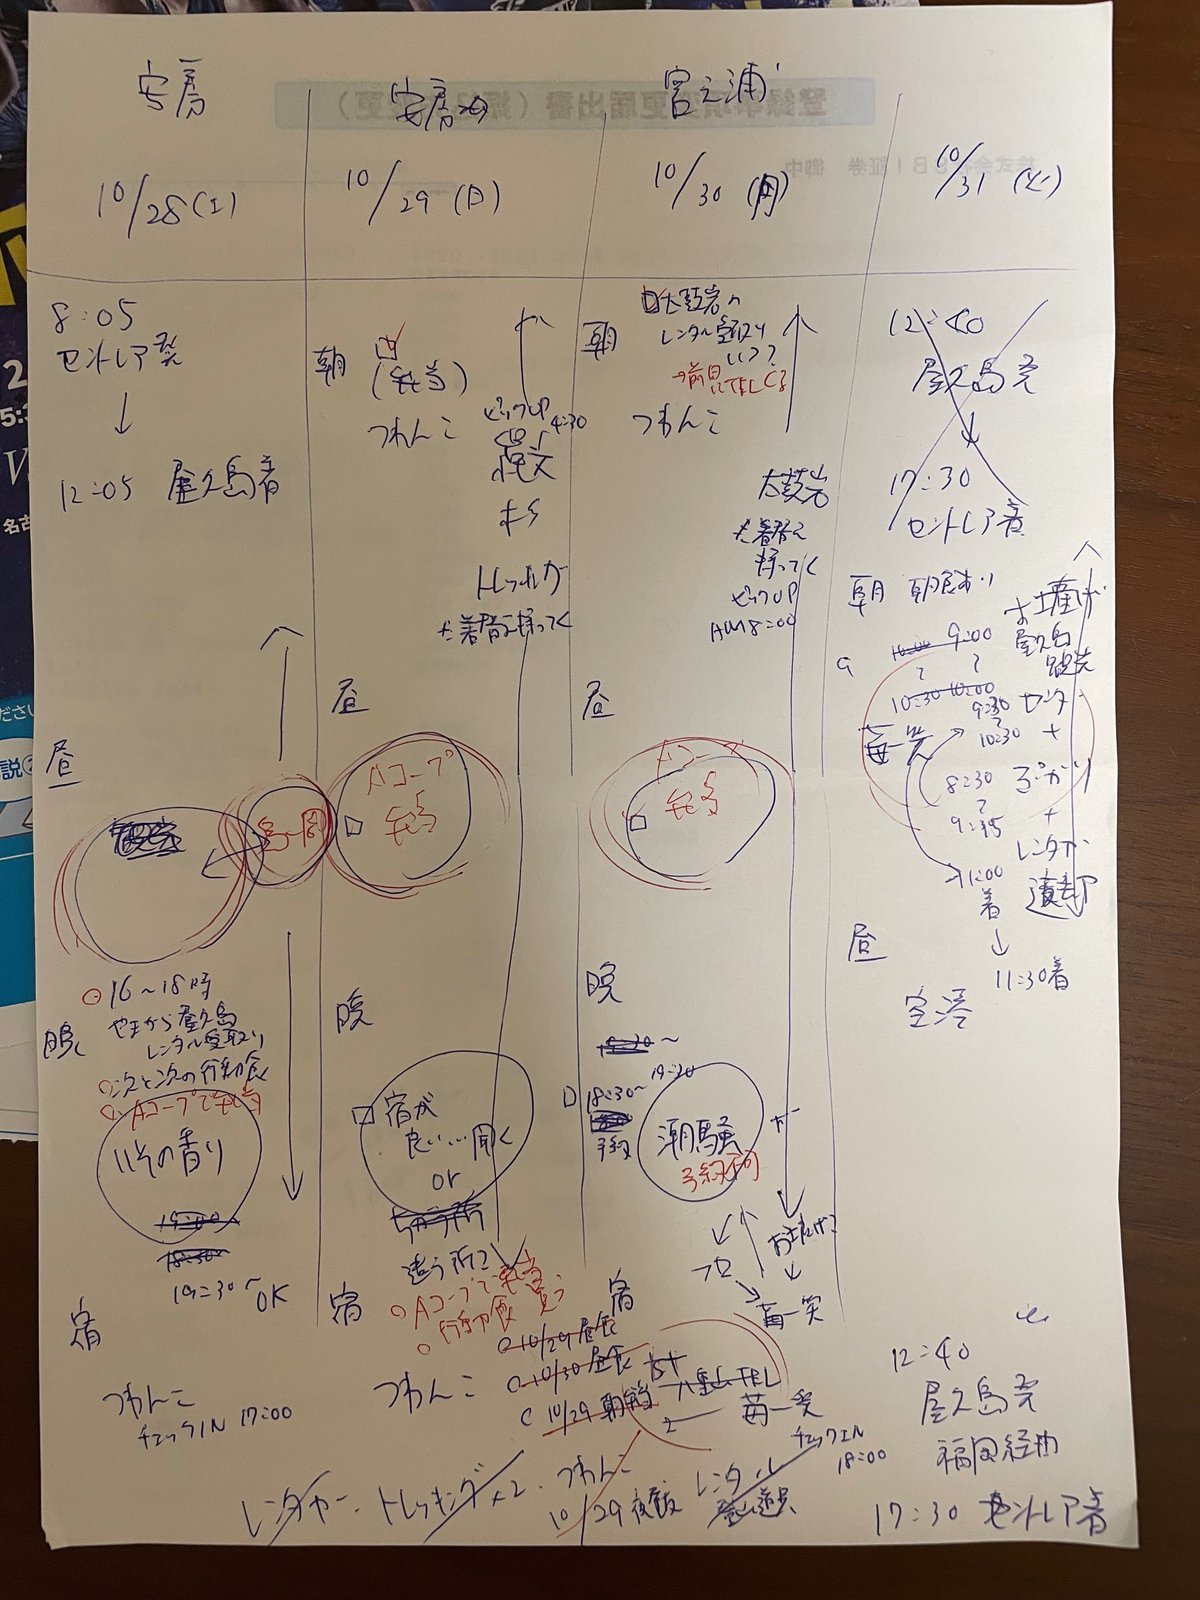 安房
10/28(土)
8:05
セントレア発
↓
12:05 屋久島着
昼
島一周
16～18時
やまから屋久島
レンタル受取り
次と次の行動食
Aコープで弁当
晩
いその香り
19:00
18:30
19:30～OK
宿
つわんこ
チェックIN 17:00
安房
10/29(日)
朝
(弁当)
つわんこ
ピックUP
4:30
縄文
トレッキング
着替え持ってく
昼
Aコープ
弁当
晩
宿が
良い…聞く
or
違う所に
Aコープで弁当
行動食 買う
宿
つわんこ
宮之浦
10/30(月)
朝
太鼓岩の
レンタル受取り
いつ?
→前日TELくる
つわんこ
太鼓岩
着替え
持ってく
ピックUP
AM8:00
昼
Aコープ
弁当
晩
19:20
18:30～
予約
潮騒
予約不可
苺一笑
宿
10/29昼食
10/30昼食
10/29朝食
TEL
苺一笑
チェックIN
18:00
レンタカー・トレッキング×2・つわんこ
10/29夜飯
レンタル
登山道具
10/31(火)
12:40
屋久島発
↓
17:30
セントレア着
朝 朝食あり
お土産
屋久島
10:00 9:00
10:30 10:00
9:30
10:30
センター
+
苺一笑
8:30
9:45
+
レンタカー
返却
11:00
着
↓
11:30着
昼
空港
12:40
屋久島発
福岡経由
17:30 セントレア着